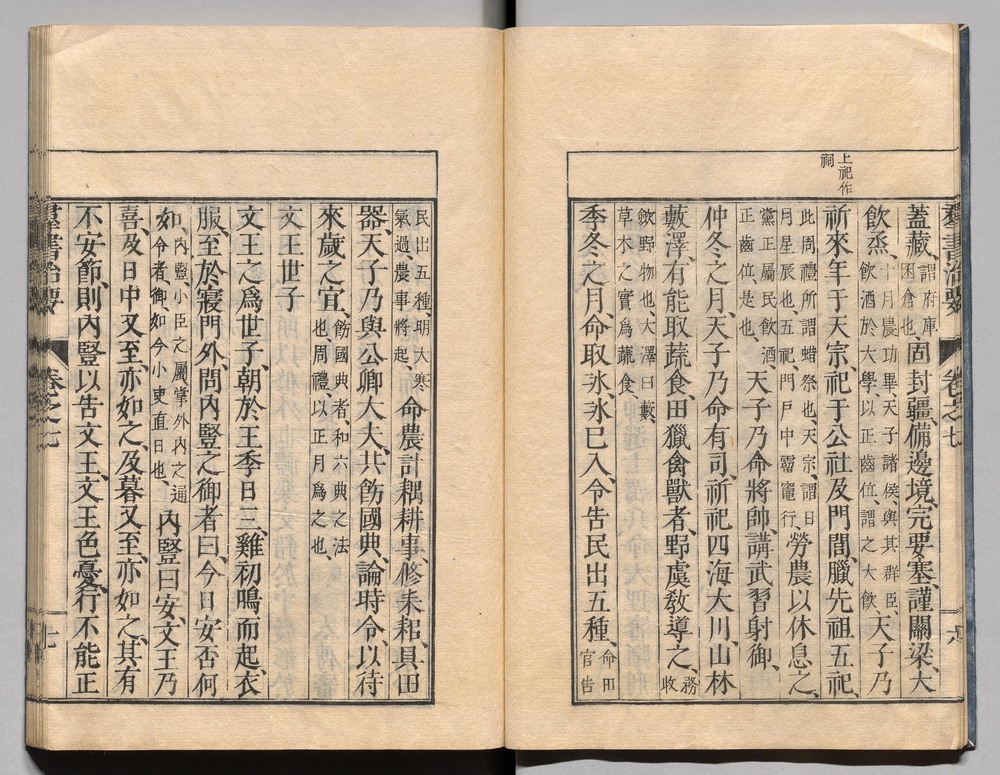 上祀作
祠
羣書治要 卷之七 六
蓋藏、謂府庫囷倉也、固封疆、備邊境、完要塞、謹關梁、大
飲烝、十月農功畢、天子諸侯、與其群臣、飲酒於大學、以正齒位、謂之大飲、天子乃
祈來年于天宗、祀于公社及門閭、臘先祖五祀、
此周禮所謂蜡祭也、天宗、謂日月星辰也、五祀、門戶中霤竈行、勞農以休息之、
黨正屬民飲酒、正齒位、是也、天子乃命將帥、講武習射御、
仲冬之月、天子乃命有司、祈祀四海大川、山林
藪澤、有能取蔬食、田獵禽獸者、野虞敎導之、務收
斂野物也、大澤曰藪、草木之實爲蔬食、
季冬之月、命取冰、冰已入、令告民出五種、命田官告
民出五種、明大寒氣過、農事將起、命農計耦耕事、修耒耜、具田
器、天子乃與公卿大夫、共飭國典、論時令、以待
來歲之宜、飭國典者、和六典之法也、周禮、以正月爲之也、
文王世子
文王之爲世子、朝於王季日三、雞初鳴而起、衣
服、至於寢門外、問內豎之御者曰、今日安否何
如、內豎、小臣之屬、掌外內之通命者、御、如今小吏直日也、內豎曰安、文王乃
喜、及日中又至、亦如之、及暮又至、亦如之、其有
不安節、則內豎以告文王、文王色憂、行不能正
羣書治要 卷之七 七